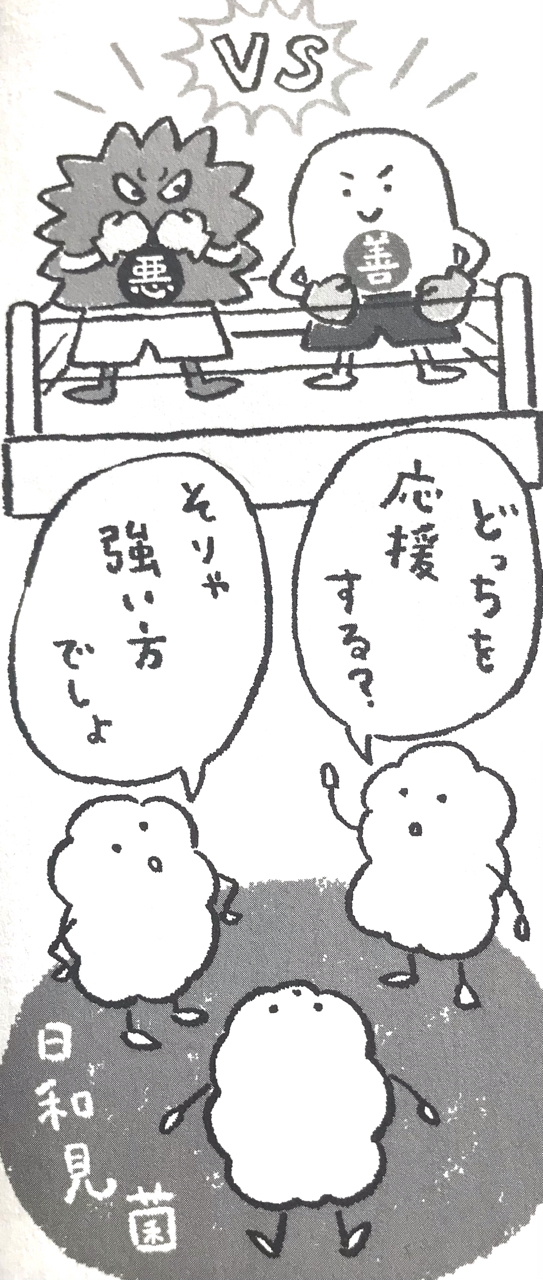 VS
悪
善
どっちを
応援
する?
そりゃ
強い方
でしょ
日和見菌